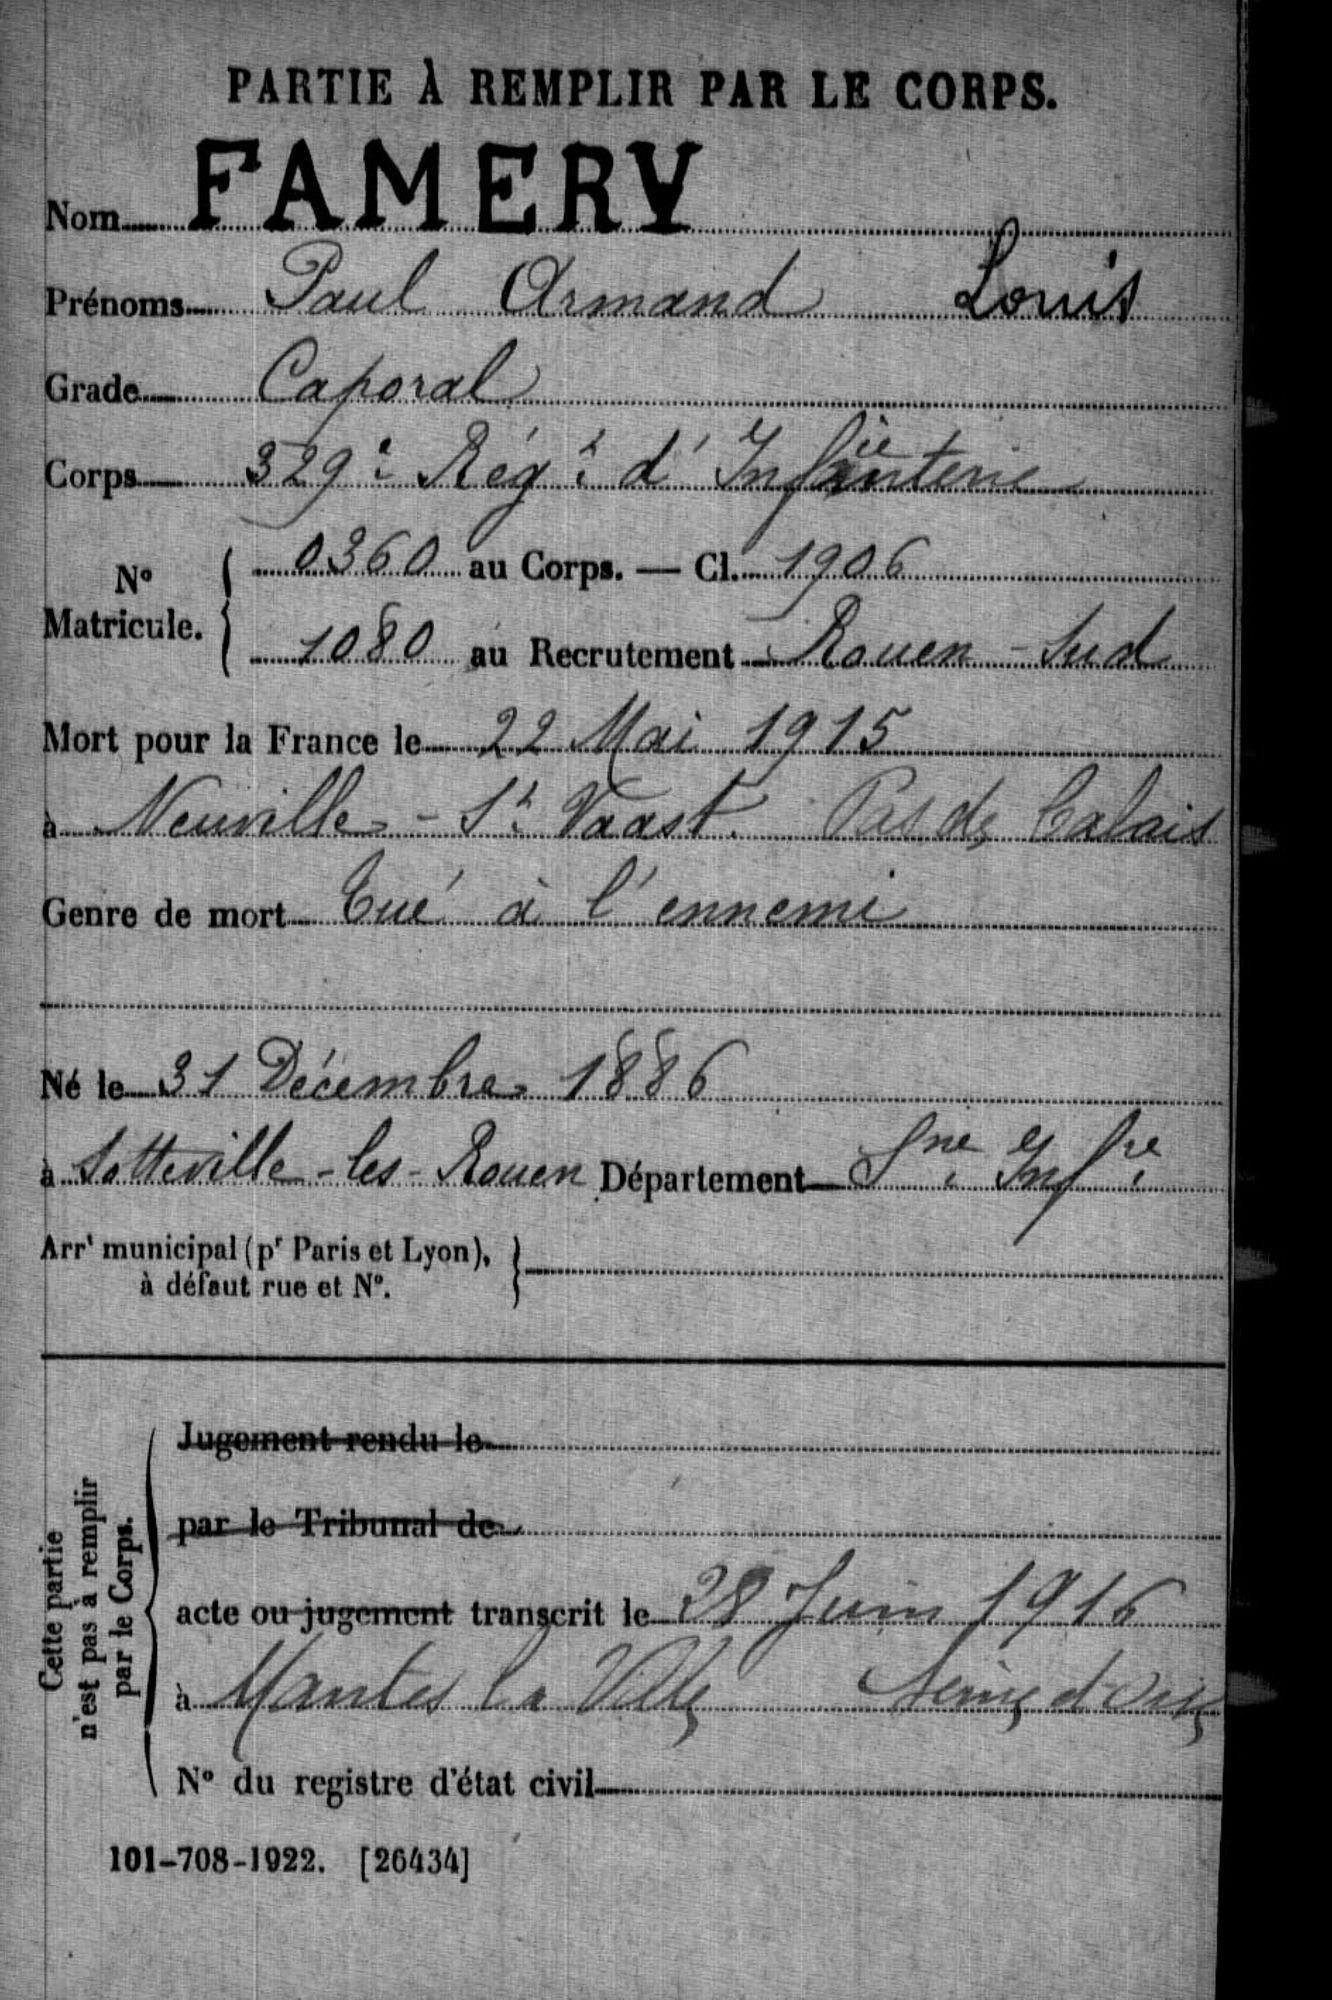 PARTIE À REMPLIR PAR LE CORPS.
Nom FAMERY
Prénoms Paul Armand Louis
Grade Caporal
Corps 329e Régt d'Infanterie
N° Matricule. { 0360 au Corps. — Cl. 1906
1080 au Recrutement Rouen - Sud
Mort pour la France le 22 Mai 1915
à Neuville - St Vaast. Pas de Calais
Genre de mort Tué à l'ennemi
Né le 31 Décembre 1886
à Sotteville - les - Rouen Département Sne Infre
Arrt municipal (pr Paris et Lyon), }
à défaut rue et N°.
Cette partie
n'est pas à remplir
par le Corps.
Jugement rendu le
par le Tribunal de
acte ou jugement transcrit le 28 Juin 1916
à Mantes la Ville Seine et Oise
N° du registre d'état civil
101-708-1922. [26434]